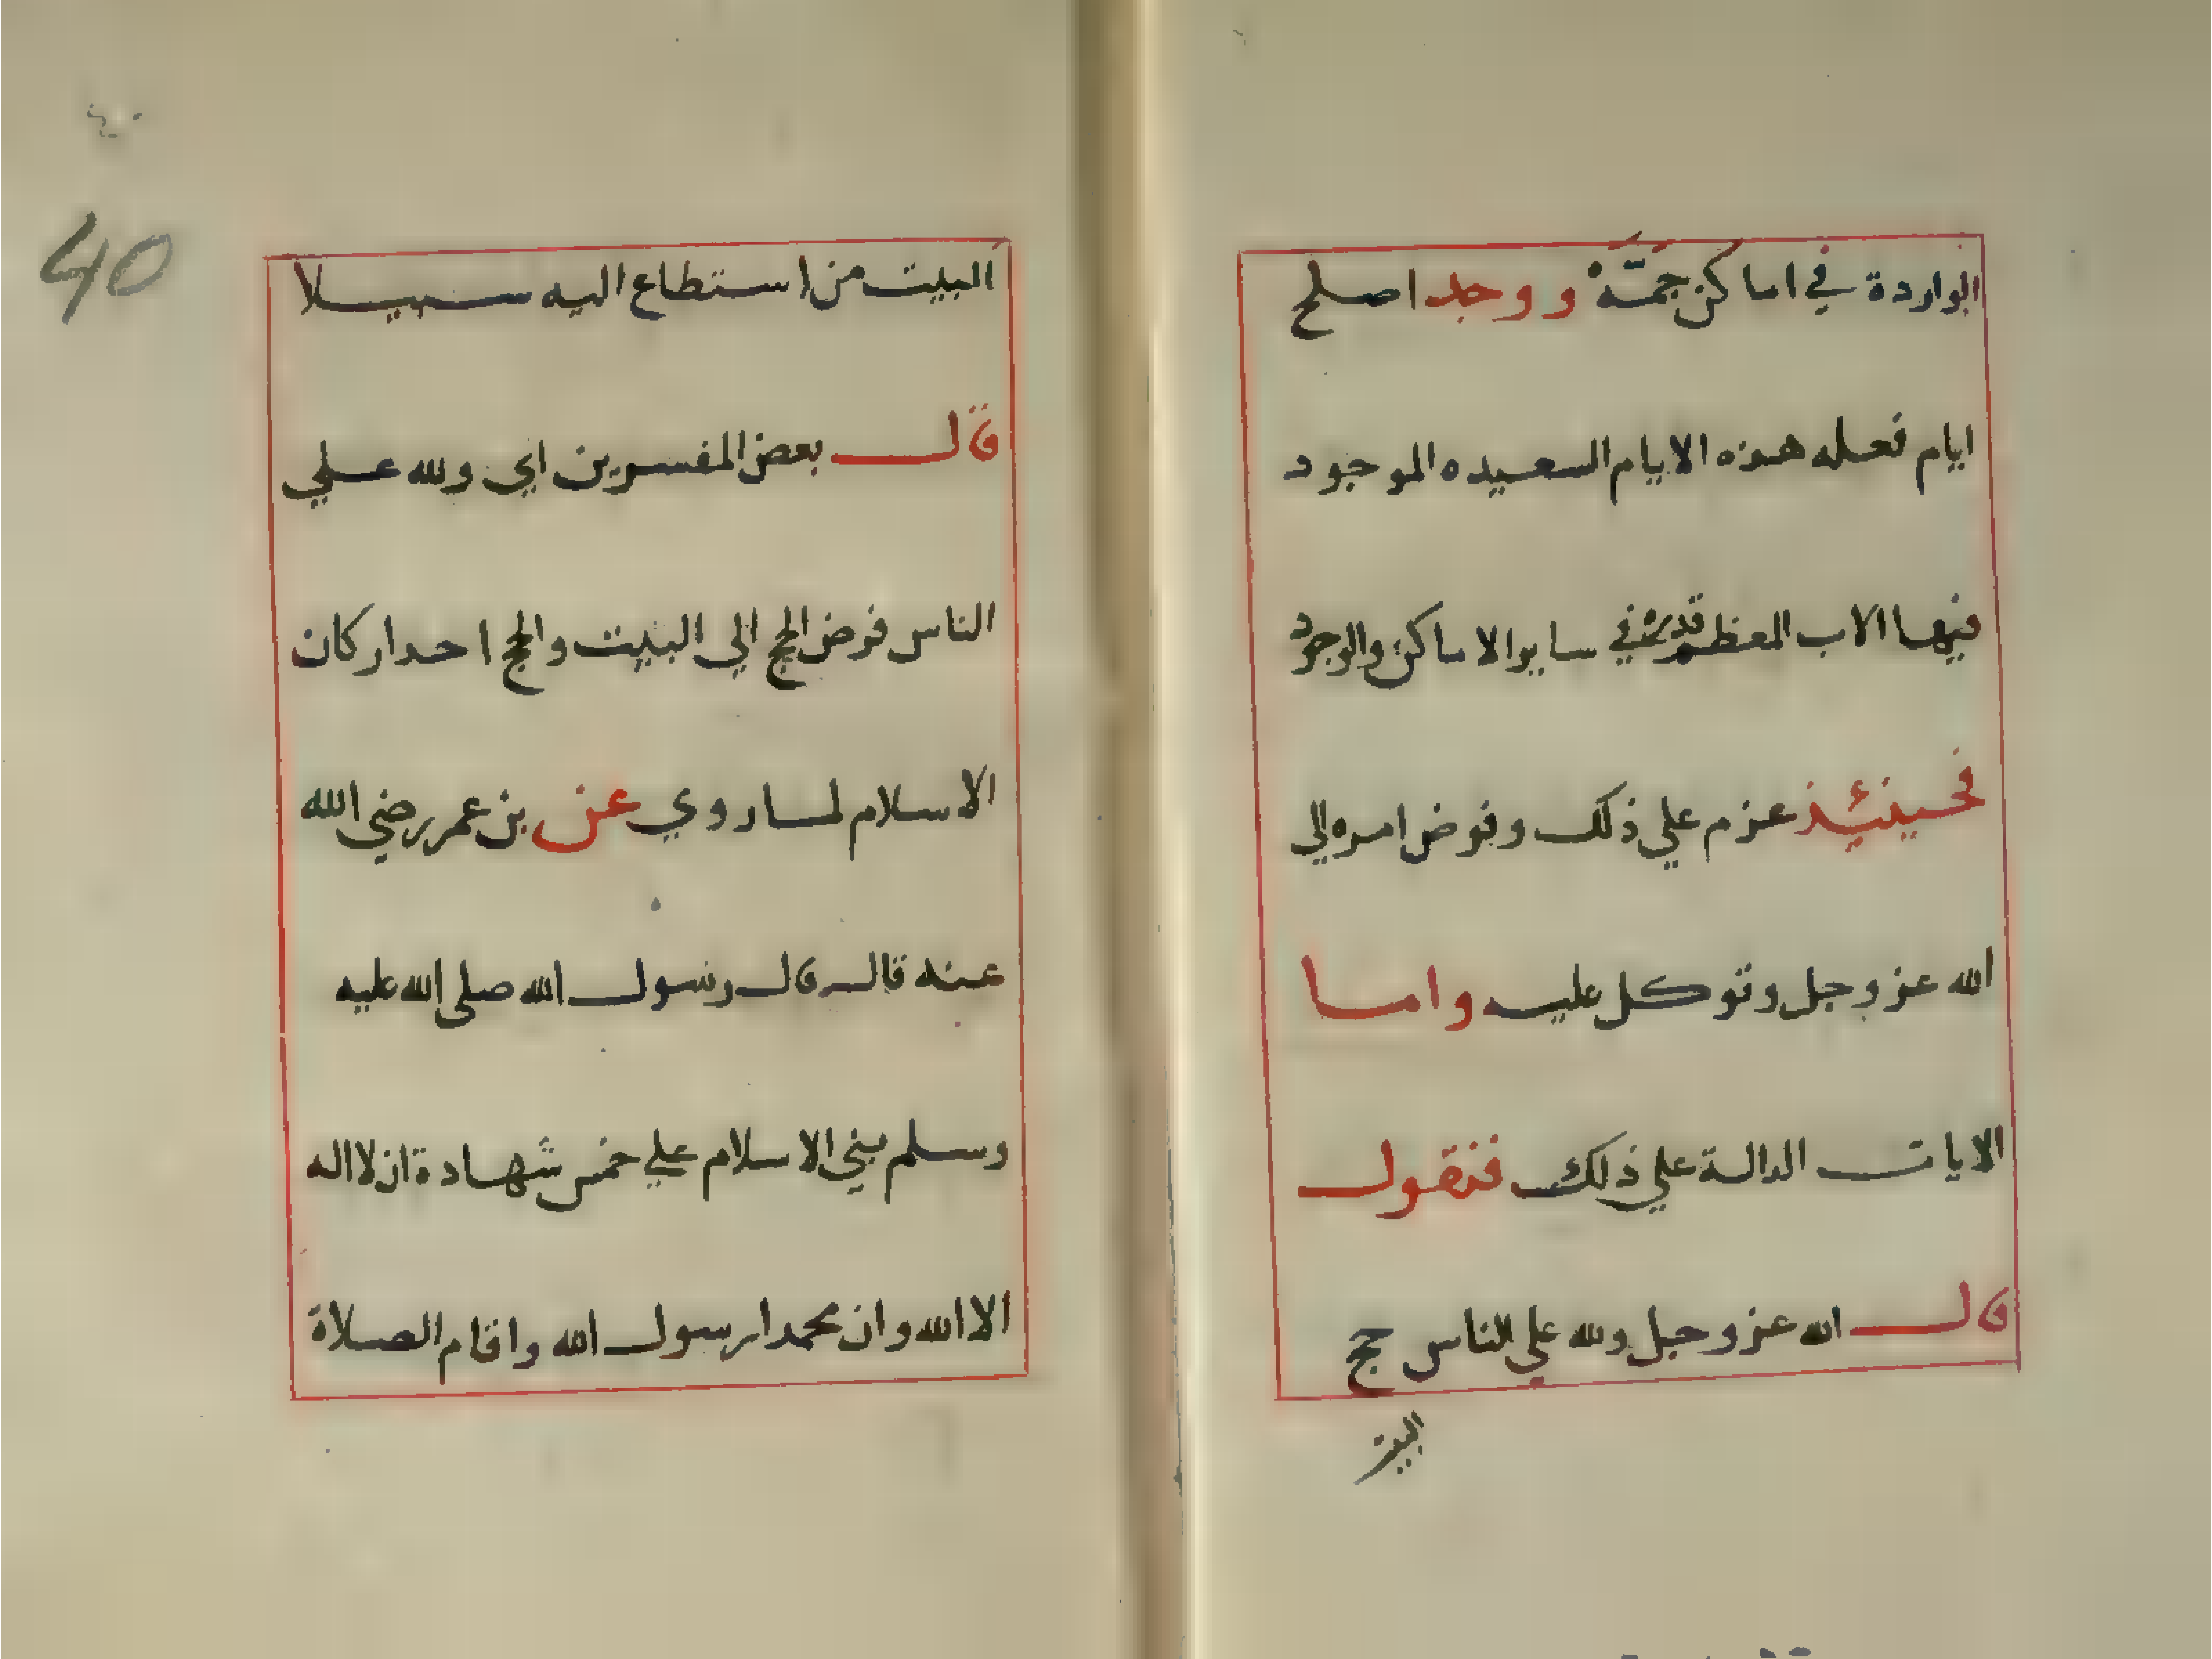 الواردة في اماكن جمّة ووجد اصلح
ايام فعله هذه الايام السعيده الموجود
فيها الاب المعظم قدره في سايرالاماكن والوجود
فحينئيذ عزم علي ذلك وفوض امره الي
الله عز وجل وتوكل عليه واما
الايات الدالة علي ذلك فنقول
قال الله عز وجل ولله علي الناس حج
البيت
٤٠
40
البيت من استطاع اليه سبيلا
قال بعض المفسرين اي ولله علي
الناس فرض الحج الي البيت والحج احداركان
الاسلام لما روي عن بن عمر رضي الله
عنه قال قال رسول الله صلى الله عليه
وسلم بني الاسلام علي خمس شهادة ان لااله
الا الله وان محمدا رسول الله واقام الصلاة